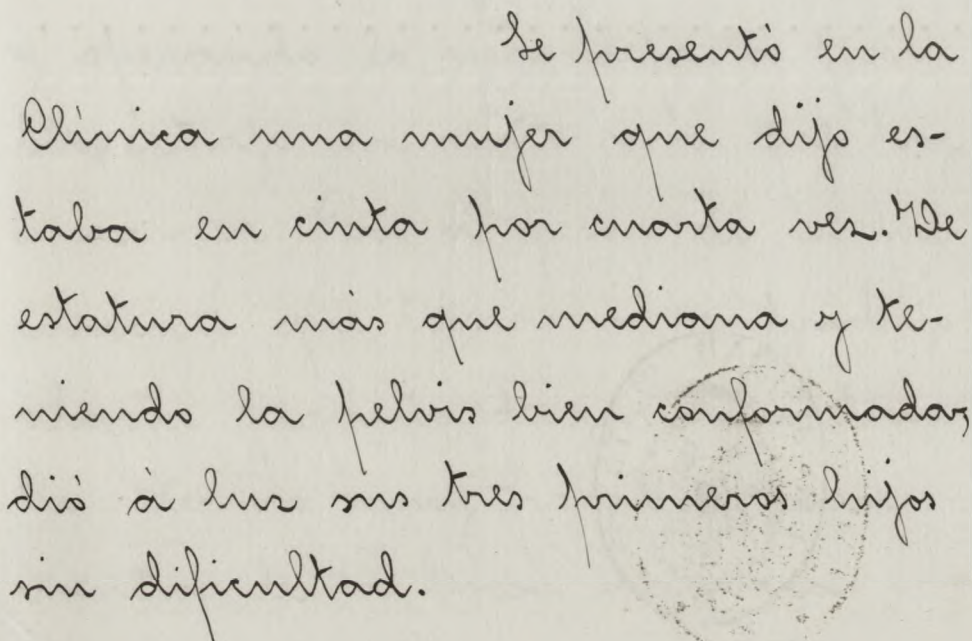 Se presentó en la
Clínica una mujer que dijo es-
taba en cinta por cuarta vez. De
estatura más que mediana y te-
niendo la pelvis bien conformada,
dió à luz sus tres primeros hijos
sin dificultad.